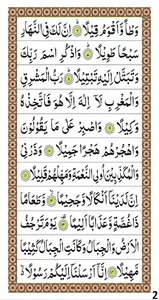 وَطْأً وَّاَقْوَمُ قِيْلًا ؕ‏﴿۶﴾ اِنَّ لَكَ فِى النَّهَارِ
سَبْحًا طَوِيْلًا ؕ‏﴿۷﴾ وَاذْكُرِ اسْمَ رَبِّكَ
وَتَبَتَّلْ اِلَيْهِ تَبْتِيْلًا ؕ‏﴿۸﴾ رَبُّ الْمَشْرِقِ
وَالْمَغْرِبِ لَاۤ اِلٰهَ اِلَّا هُوَ فَاتَّخِذْهُ
وَكِيْلًا‏﴿۹﴾ وَاصْبِرْ عَلٰى مَا يَقُوْلُوْنَ
وَاهْجُرْهُمْ هَجْرًا جَمِيْلًا‏﴿۱۰﴾ وَذَرْنِىْ
وَالْمُكَذِّبِيْنَ اُولِى النَّعْمَةِ وَمَهِّلْهُمْ قَلِيْلًا‏﴿۱۱﴾
اِنَّ لَدَيْنَاۤ اَنْكَالًا وَّجَحِيْمًا ۙ‏﴿۱۲﴾ وَّطَعَامًا
ذَا غُصَّةٍ وَّعَذَابًا اَلِيْمًا‏﴿۱۳﴾ يَوْمَ تَرْجُفُ
الْاَرْضُ وَالْجِبَالُ وَكَانَتِ الْجِبَالُ كَثِيْبًا
مَّهِيْلًا‏﴿۱۴﴾ اِنَّاۤ اَرْسَلْنَاۤ اِلَيْكُمْ رَسُوْلًا ۙ
2